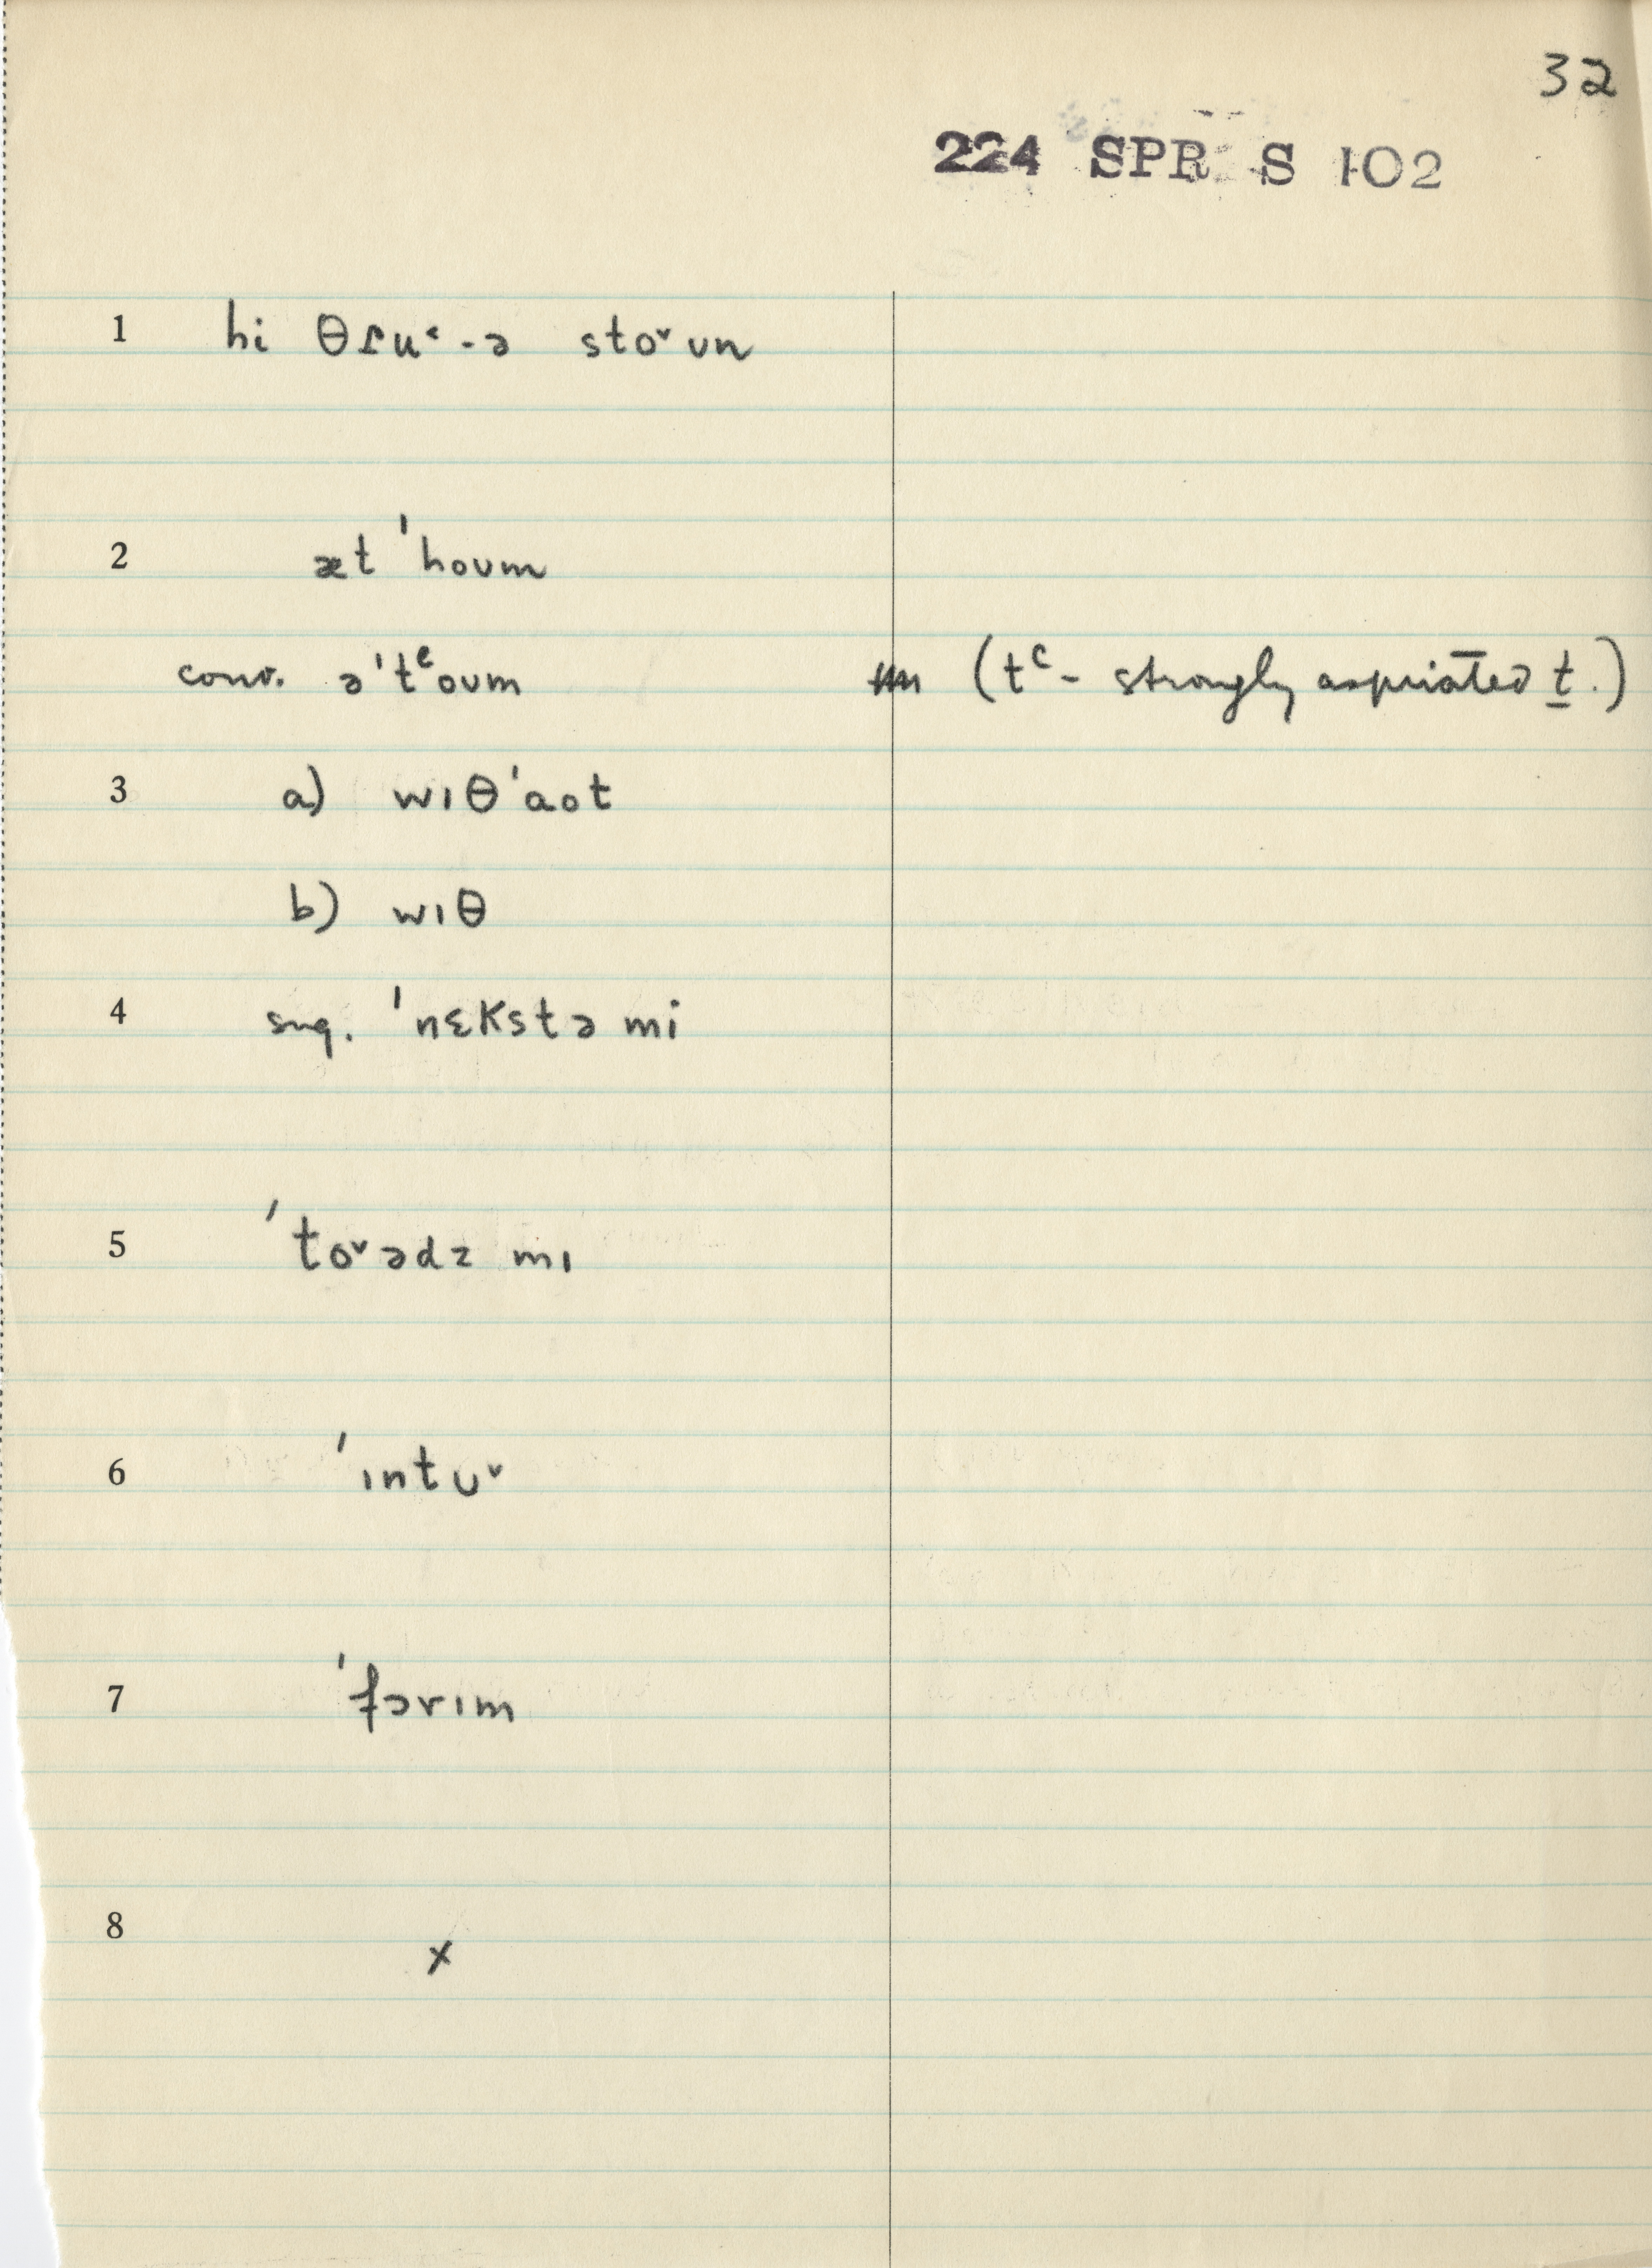 32
224 SPR S 102
1 hi θɾu˂-ə sto˅ʊn
2 æt 'hoʊm
conv. ə'tᶜoʊm (tᶜ- strongly aspriated t.)
3 a) wɪθ'aot
b) wɪθ
4 sug. 'nɛKstə mi
5 'to˅ədz mɪ
6 'ɪntʊ˅
7 'fɔrɪm
8 x